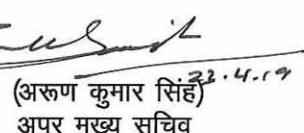 22.4.19
(अरूण कुमार सिंह)
अपर मुख्य सचिव